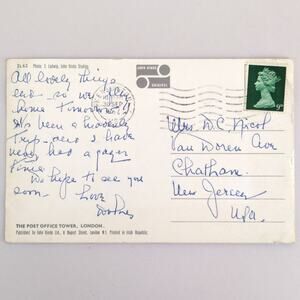 2L62 Photo: E. Ludwig, John Hinde Studios.
JOHN HINDE
ORIGINAL
All lovely things
end - so we
home tomorrow
It's been a heavenly
trip - and I have
never had a
time
We hope to see you
soon.
Love
9D
Mrs. D.C. Nicol
Van Doren Ave
Chatham
New Jersey
USA.
THE POST OFFICE TOWER, LONDON.
Published by John Hinde Ltd., 6 August Street, London NW1. Printed in Irish Republic.